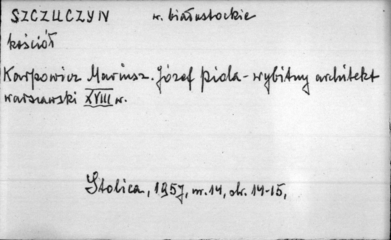 SZCZUCZYN w. białostockie
kościół
Karpowicz Mariusz. Józef Piola - wybitny architekt
warszawski XVIII w.
Stolica, 1957, nr. 14, str. 14-15,